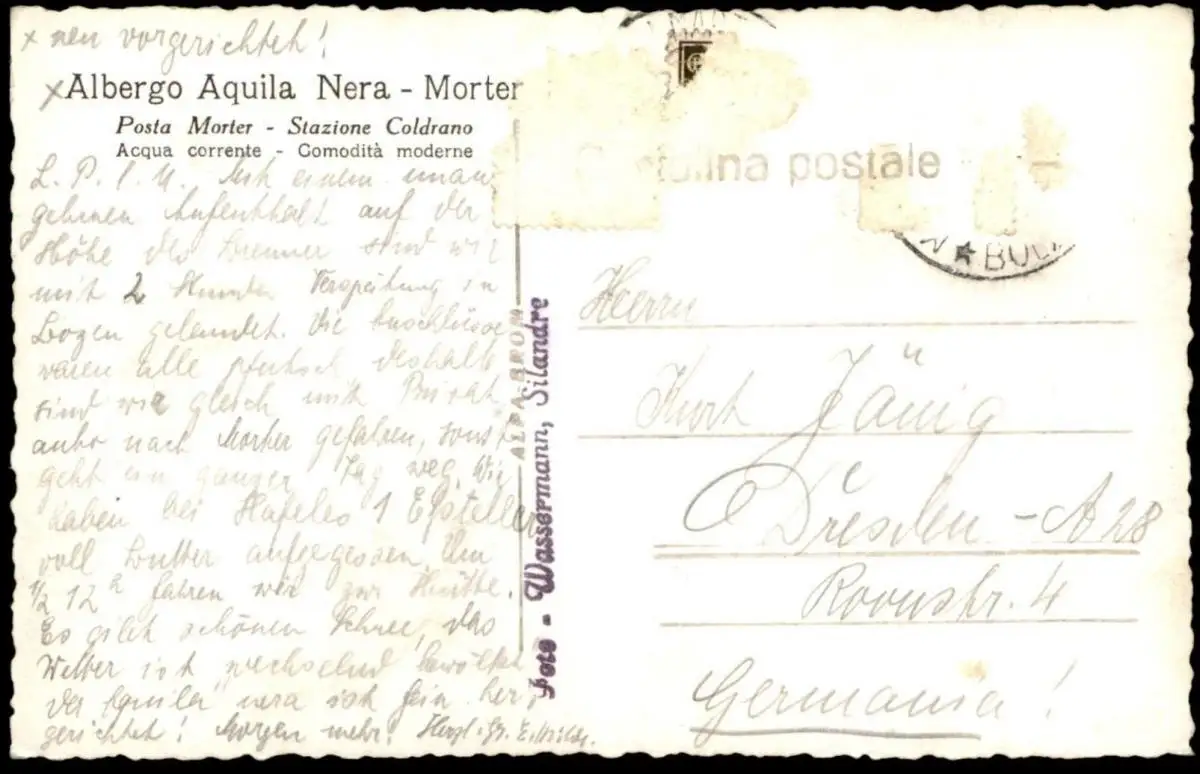 x neu vorgerichtet!
x Albergo Aquila Nera - Morter
Posta Morter - Stazione Coldrano
Acqua corrente - Comodità moderne
L. P. u. M. Mit einem unan
gehmen Aufenthalt auf der
Höhe des Brenner sind wir
mit 2 Stunden Verspätung in
Bozen gelandet. Die Anschlüsse
waren alle pfutsch deshalb
sind wir gleich mit Privat
auto nach Morter gefahren, sonst
geht ein ganzer Tag weg. Wir
haben bei Hafeles 1
voll Butter aufgegessen. Um
1/2 12 fahren wir zur Hütte.
Es gibt schönen Schnee, das
Wetter ist wechselnd bewölkt
Der aquila nera ist fein her
gerichtet! Morgen mehr! Herzl. Gr.
ALPA-BROM
Foto - Wassermann, Silandro
tolina postale
BOL
Herrn
Kurt Jänig
Dresden - A 28
Roonstr. 4
Germania!